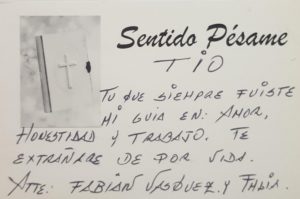 Sentido Pésame
TIO
TU QUE SIEMPRE FUISTE
MI GUIA EN: AMOR,
HONESTIDAD Y TRABAJO. TE
EXTRAÑARE DE POR VIDA.
ATTE: FABIAN VASQUEZ. Y